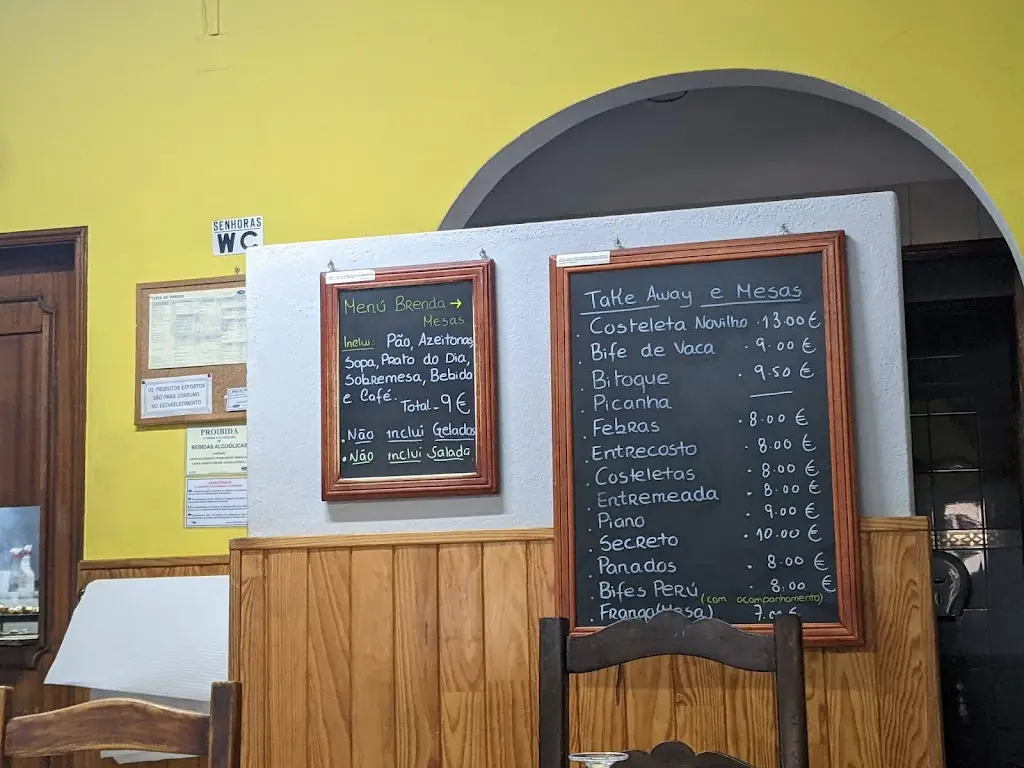 SENHORAS
WC
OS PRODUTOS EXPOSTOS
SÃO PARA CONSUMO
NO ESTABELECIMENTO
PROIBIDA
BEBIDAS ALCOÓLICAS
Menú Brenda →
Mesas
Inclui: Pão, Azeitonas
Sopa, Prato do Dia,
Sobremesa, Bebida
e Café.
Total - 9 €
. Não inclui Gelados
. Não inclui Salada
Take Away e Mesas
. Costeleta Novilho . 13.00 €
. Bife de Vaca . 9.00 €
. Bitoque . 9.50 €
. Picanha —
. Febras . 8.00 €
. Entrecosto . 8.00 €
. Costeletas . 8.00 €
. Entremeada . 8.00 €
. Piano . 9.00 €
. Secreto . 10.00 €
. Panados . 8.00 €
. Bifes Perú . 8.00 €
(com acompanhamento)
. Frango (Mesa) 7.00 €